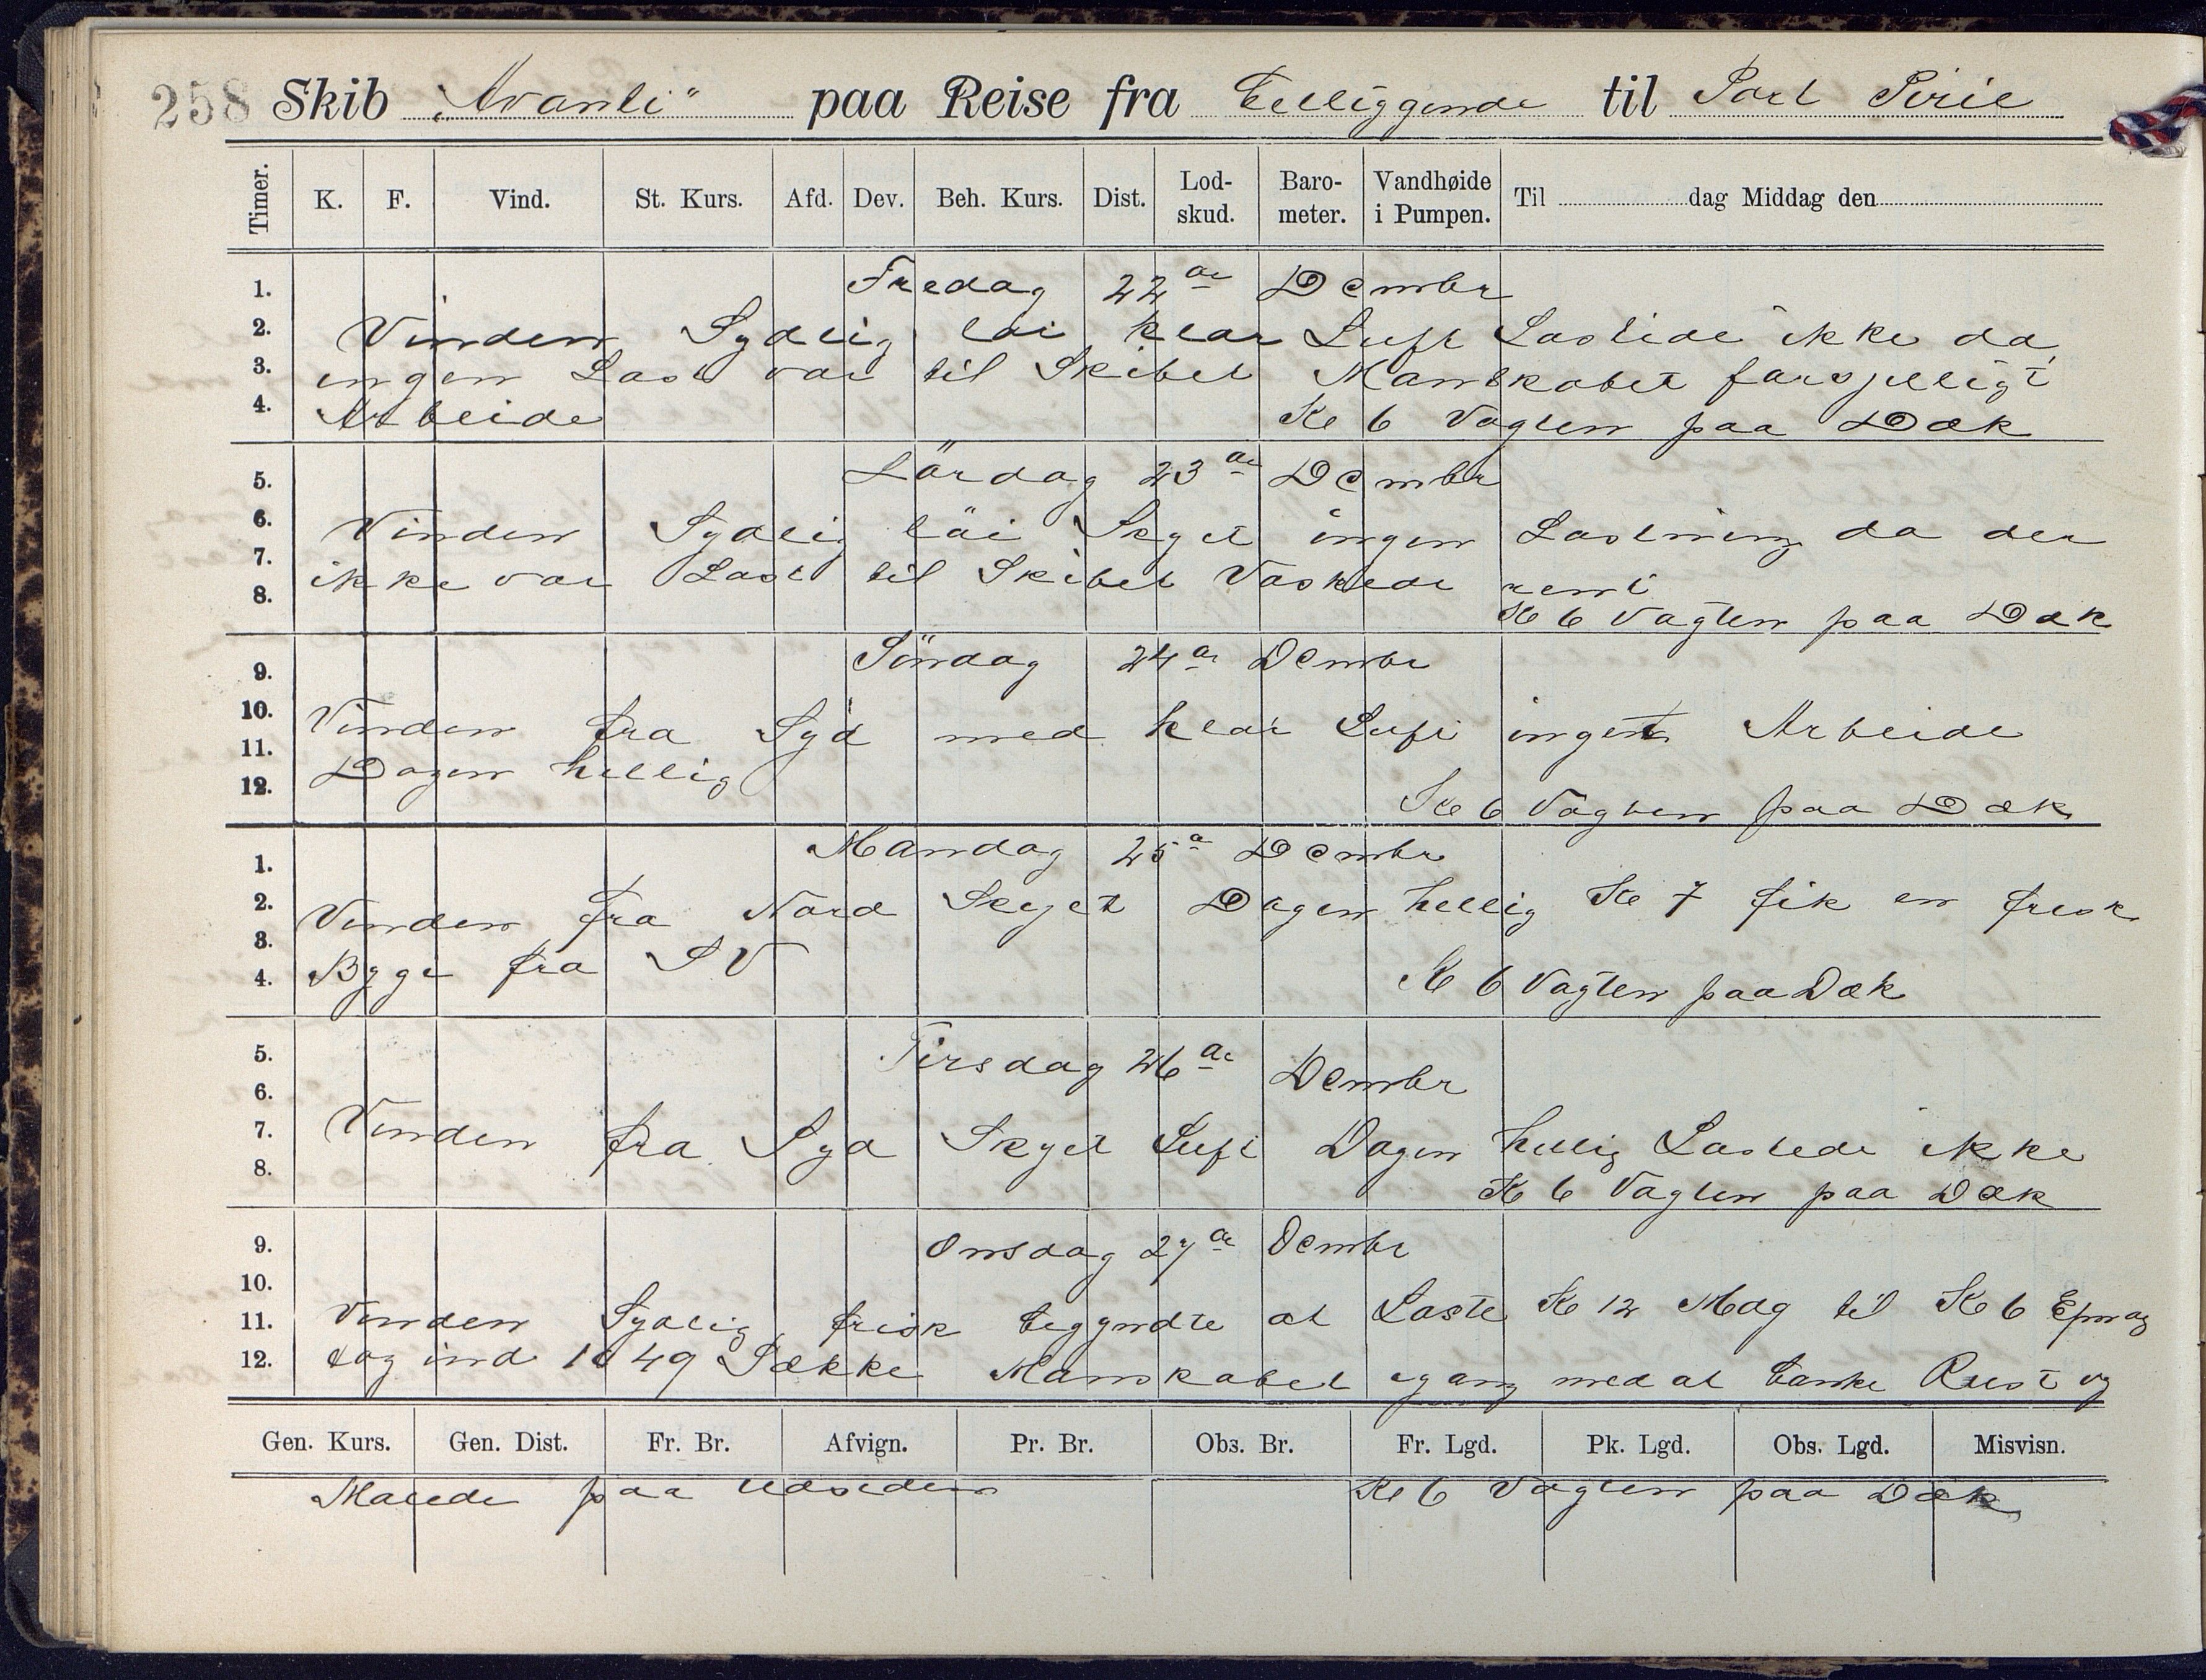 258 Skib „Avanti" paa Reise fra Tilliggende til Port Pirie
Timer. K. F. Vind. St. Kurs. Afd. Dev. Beh. Kurs. Dist. Lod-skud. Baro-meter. Vandhøide i Pumpen. Til dag Middag den
1. Fredag 22de Dcmbr
2. Vinden Sydlig löi klar Luft Lastede ikke da
3. ingen Last var til Skibet Manskabet farsjelligt
4. Arbeide Kl 6 Vagten paa Dæk
5. Lördag 23de Dcmbr
6. Vinden Sydlig löi Skyet ingen Lastning da der
7. ikke var Last til Skibet Vaskede rent
8. Kl 6 Vagten paa Dæk
9. Söndag 24de Dcmbr
10. Vinden fra Syd med klar Luft intet Arbeide
11. Dagen hellig
12. Kl 6 Vagten paa Dæk
1. Mandag 25de Dcmbr
2. Vinden fra Nord Skyet Dagen hellig Kl 7 fik en frisk
3.
4. Byge fra SV Kl 6 Vagten paa Dæk
5. Tirsdag 26de Dcmbr
6.
7. Vinden fra Syd Skyet Luft Dagen hellig Lastede ikke
8. Kl 6 Vagten paa Dæk
9. Onsdag 27de Dcmbr
10.
11. Vinden Sydlig frisk begyndte at Laste Kl 12 Mdg til Kl 6 Efmag
12. tog ind 1049 Sække Manskabet igang med at banke Rust og
Gen. Kurs. Gen. Dist. Fr. Br. Afvign. Pr. Br. Obs. Br. Fr. Lgd. Pk. Lgd. Obs. Lgd. Misvisn.
Malede paa Udsiden Kl 6 Vagten paa Dæk